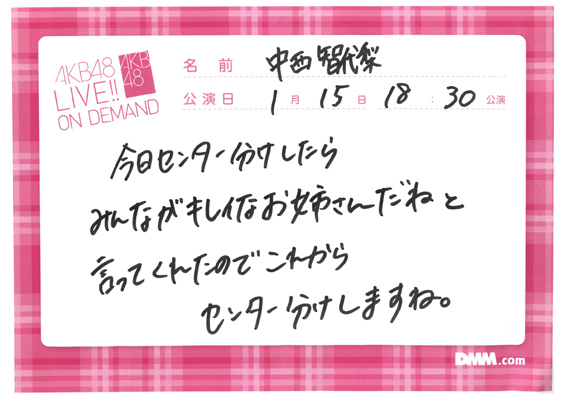 AKB48
LIVE!!
ON DEMAND
AKB
48
名前 中西智代梨
公演日 1月15日18:30公演
今日センター分けしたら
みんながキレイなお姉さんだねと
言ってくれたのでこれから
センター分けしますね。
DMM.com